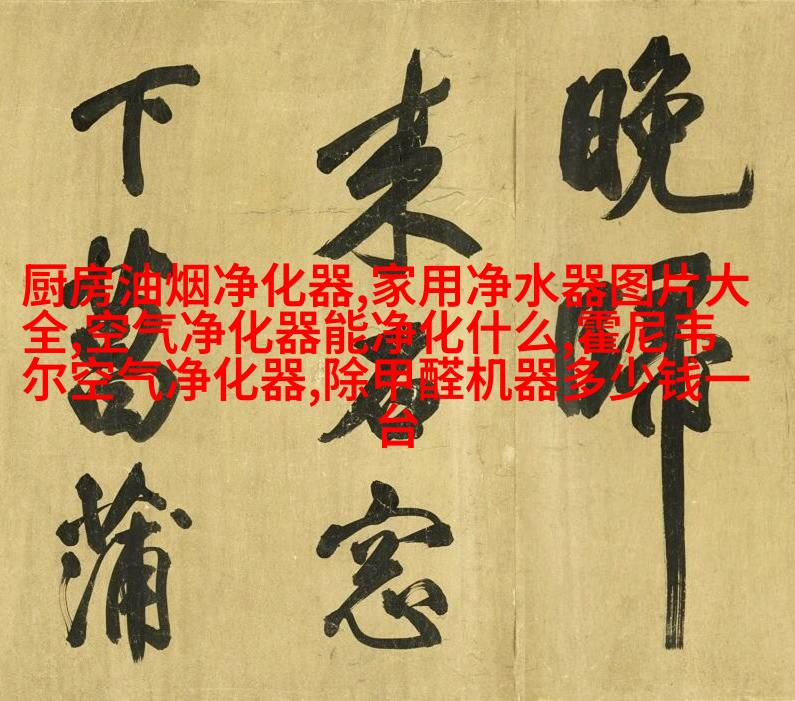 晚歸
来窓
下菖蒲
厨房油烟净化器,家用净水器图片大
全,空气净化器能净化什么,霍尼韦
尔空气净化器,除甲醛机器多少钱一
台